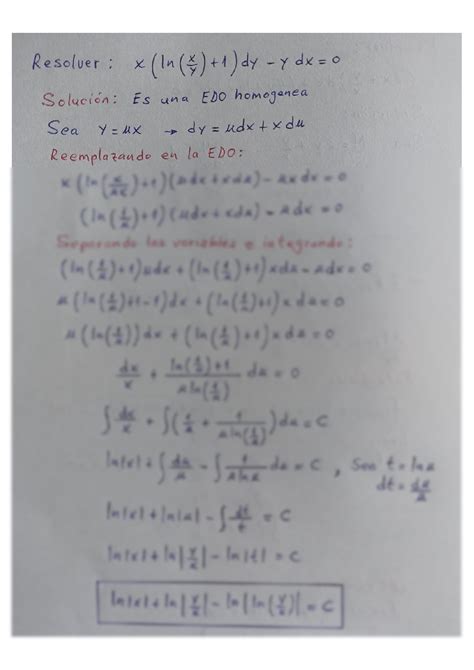 Resolver: x(ln(x/y)+1)dy - y dx = 0
Solución: Es una EDO homogenea
Sea y = ux → dy = udx + x du
Reemplazando en la EDO:
x(ln(x/ux)+1)(udx+xdu) - ux dx = 0
(ln(1/u)+1)(udx+xdu) - udx = 0
Separando las variables e integrando:
(ln(1/u)+1)udx + (ln(1/u)+1)xdu - udx = 0
u(ln(1/u)+1-1)dx + (ln(1/u)+1)x du = 0
u(ln(1/u))dx + (ln(1/u)+1)x du = 0
dx/x + (ln(1/u)+1)/(u ln(1/u)) du = 0
∫dx/x + ∫(1/u + 1/(u ln(1/u)))du = C
ln|x| + ∫du/u - ∫1/(u ln u) du = C , Sea t = ln u
dt = du/u
ln|x| + ln|u| - ∫dt/t = C
ln|x| + ln|y/x| - ln|t| = C
ln|x| + ln|y/x| - ln|ln(y/x)| = C